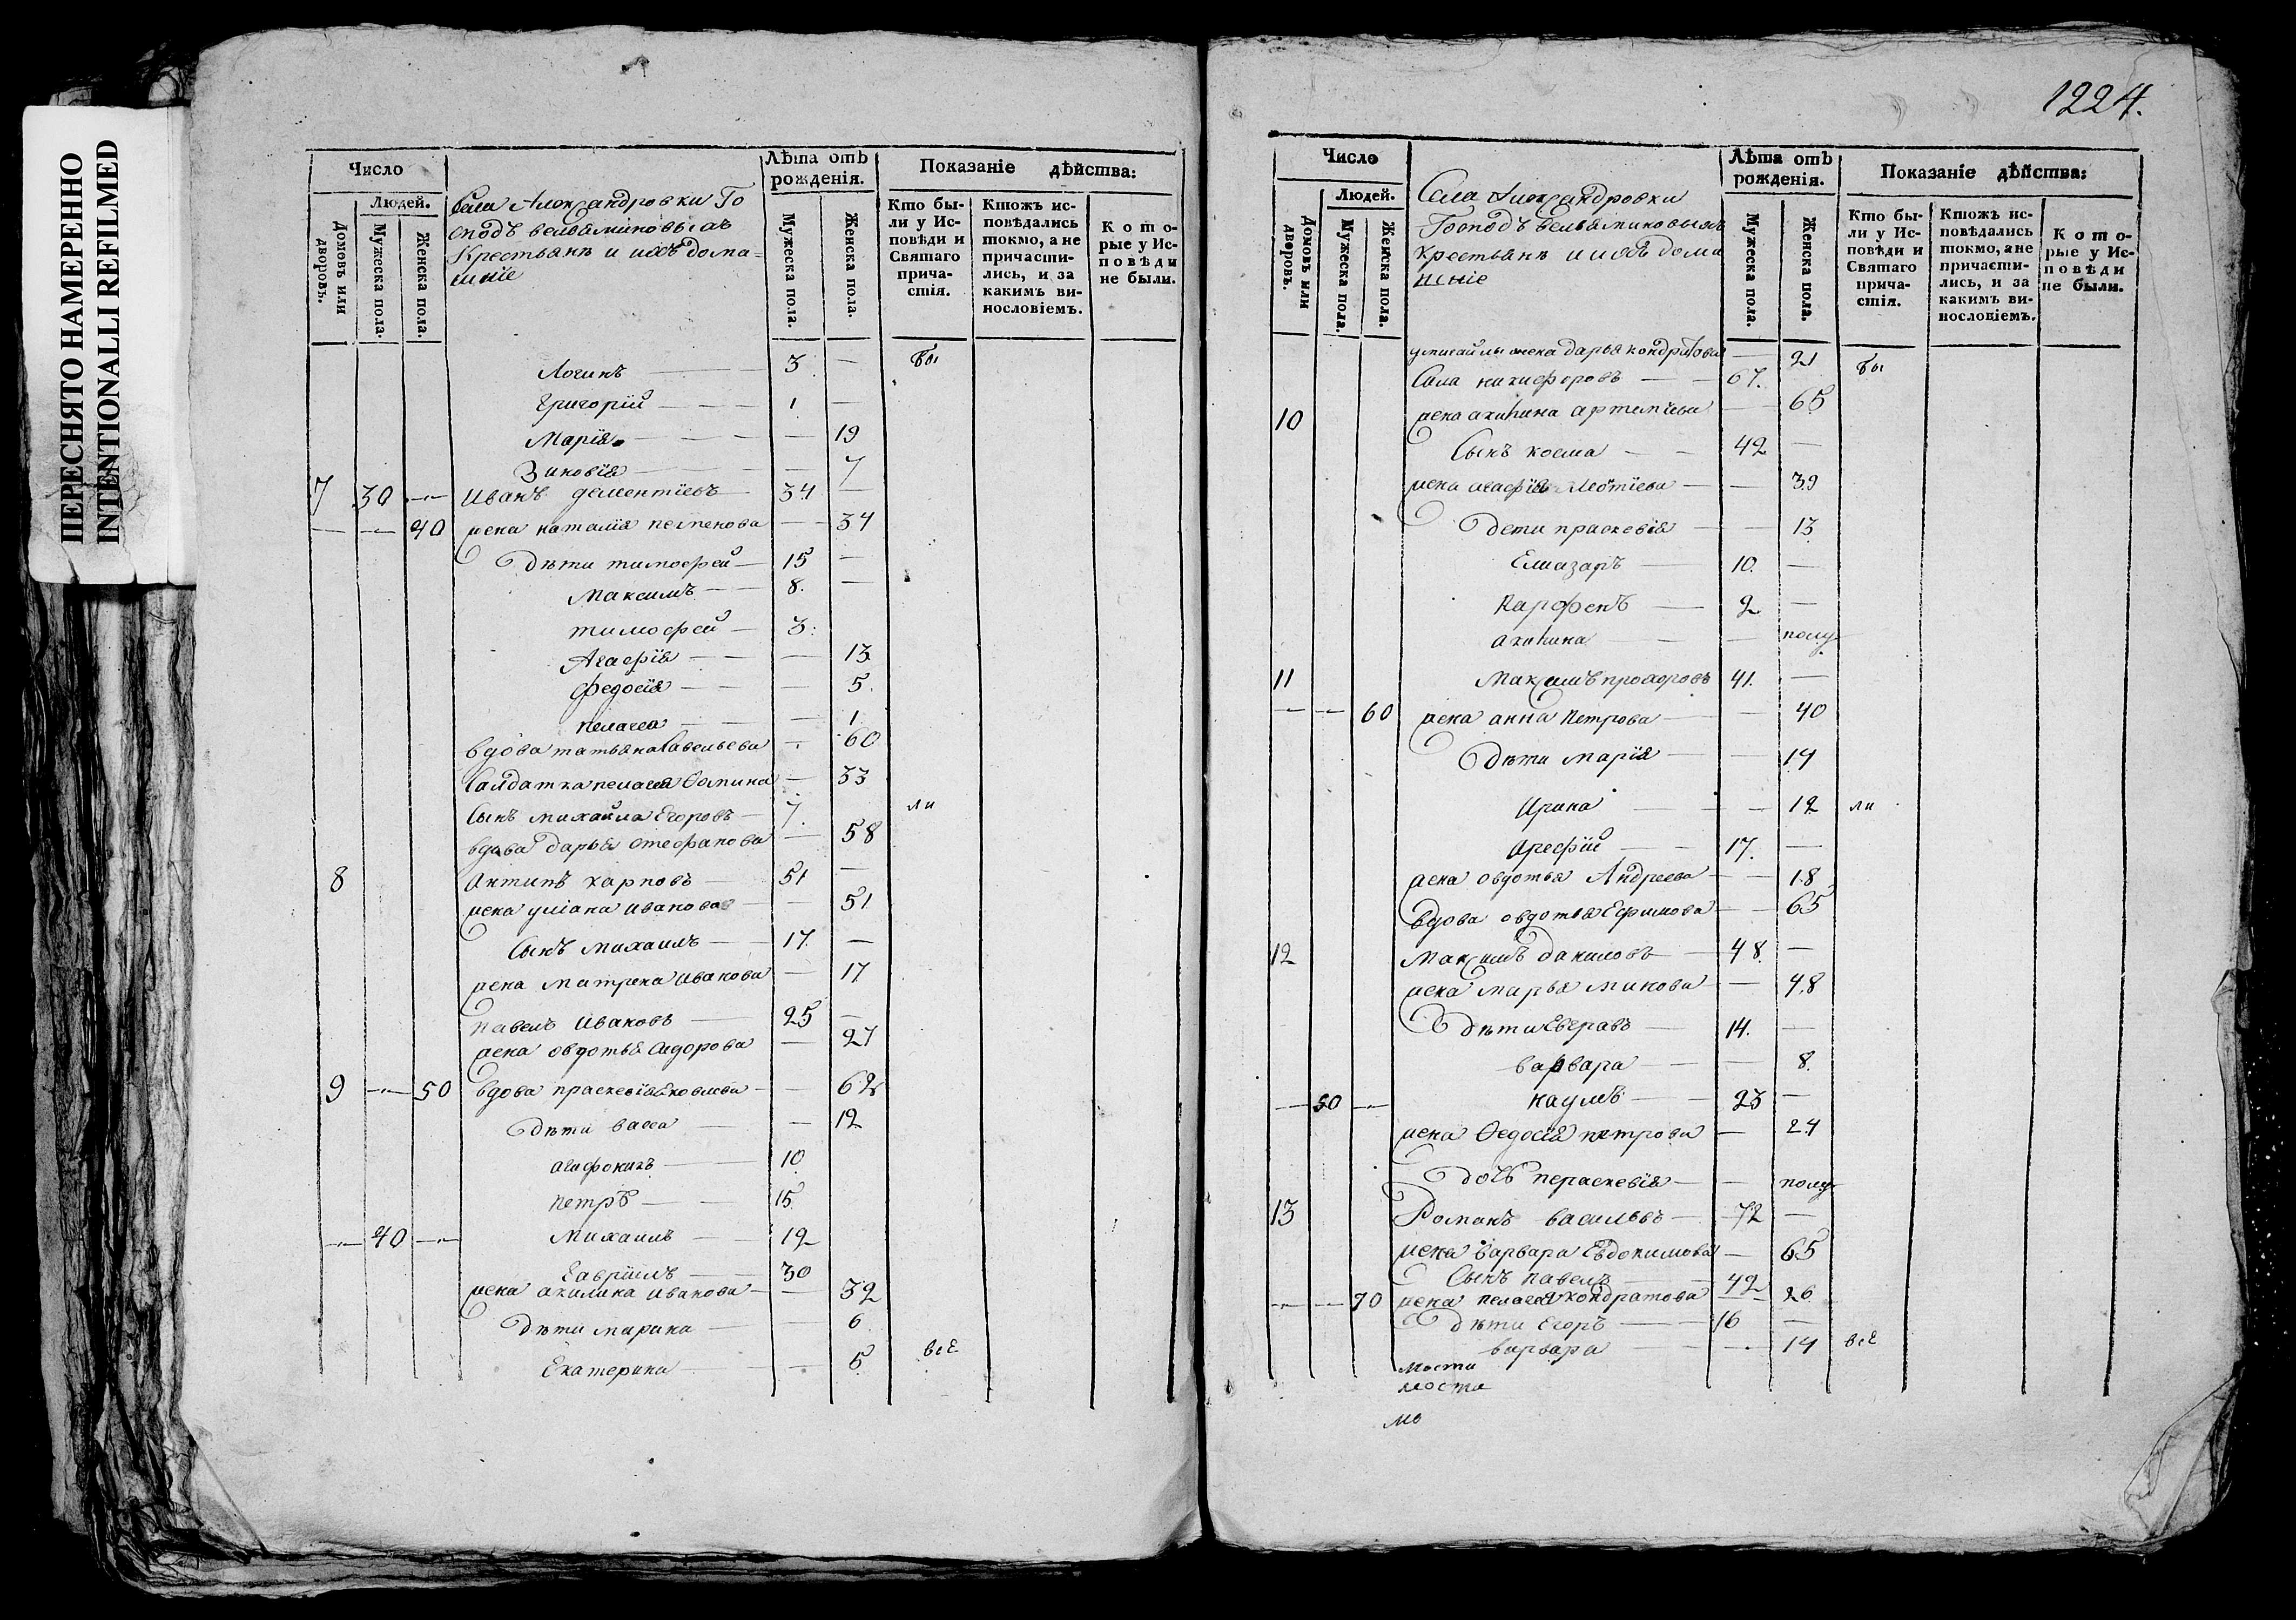 ПЕРЕСНЯТО НАМЕРЕННО
INTENTIONALLI REFILMED
Число
Людей.
Домовъ или дворовъ.
Мужеска пола.
Женска пола.
Села Александровки Го
сподъ вельяминовыхъ
Крестьянъ и ихъ дома-
шніе
Лѣта отъ рожденія.
Мужеска пола.
Женска пола.
Показаніе дѣйства:
Кто бы-
ли у Ис-
повѣди и
Святаго
прича-
стія.
Ктожъ ис-
повѣдались
токмо, а не
причасти-
лись, и за
какимъ ви-
нословіемъ.
Кото-
рые у Ис-
повѣди
не были.
Логинъ 3 — бы
Григорій 1 —
Марія — 19
Зиновія — 7
7 30 — Иванъ дементіевъ 34 —
— — 40 жена наталія — 34
Дѣти тимофей 15 —
Максимъ 8. —
тимофей 3.
Агафія — 13
федосія — 5.
пелагея — 1
вдова татьяна Савельева — 60
Салдатка пелагея Ѳомина — 33
Сынъ михайла Егоровъ 7. ли
вдова дарья стефанова — 58
8 Антипъ карповъ 51 —
жена уліана иванова — 51
Сынъ михаилъ 17. —
жена матрена иванова — 17
павелъ ивановъ 25 —
жена овдотья Сидорова — 27
9 — 50 вдова праскевія Яковлева — 62
дѣти васса — 12
агафоникъ 10
петръ 15
— 40 — Михаилъ 12
Гавріилъ 30
жена акилина иванова — 32
дѣти марина — 6
Екатерина — 5 всѣ
1224.
Число
Людей.
Домовъ или дворовъ.
Мужеска пола.
Женска пола.
Села Александровки
Господъ Вельяминовыхъ
крестьянъ и ихъ дома
шніе
Лѣта отъ рожденія.
Мужеска пола.
Женска пола.
Показаніе дѣйства:
Кто бы-
ли у Ис-
повѣди и
Святаго
прича-
стія.
Ктожъ ис-
повѣдались
токмо, а не
причасти-
лись, и за
какимъ ви-
нословіемъ.
Кото-
рые у Ис-
повѣди
не были.
умихайлы жена дарья кондратова — 21 бы
Сава никифоровъ 67. —
10 жена акилина артемьева — 65
Сынъ косма 42 —
жена агафія — 39
Дети праскевія — 13
Елиазаръ 10. —
Парфенъ 2 —
акилина — полу
11 Максимъ прохоровъ 41. —
— — 60 жена анна петрова — 40
Дѣти марія — 14
Ирина — 12 ли
Арефій 17. —
жена овдотья Андреева — 18
Вдова овдотья Ефимова — 65
12 Максимъ даниловъ 48. —
жена марья — 48
Дѣти 14. —
варвара — 8.
— 50 — наумъ 23 —
жена Ѳедосія петрова — 24
дочь пераскевія — полу
13 Романъ васильевъ 72 —
жена варвара Евдокимова — 65
Сынъ павелъ 42
— — 70 жена пелагея кондратова — 26
дѣти Егоръ 16 —
варвара — 14 всѣ
мости
мости
мо